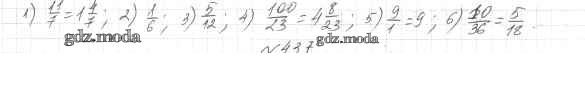 1) 11/7 = 1 4/7; 2) 1/6; 3) 5/12; 4) 100/23 = 4 8/23; 5) 9/1 = 9; 6) 10/36 = 5/18.
gdz.moda gdz.moda
№437